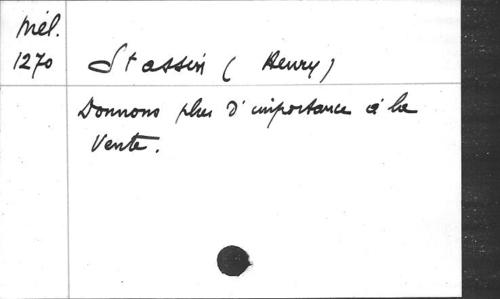 Mél.
1270
Stassin (Henry)
Donnons plus d'importance à la
Vente.